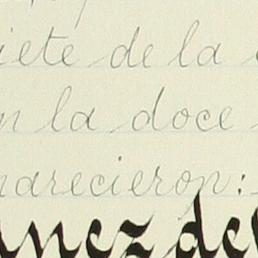 iete de la
n la doce
narecieron:
nez de